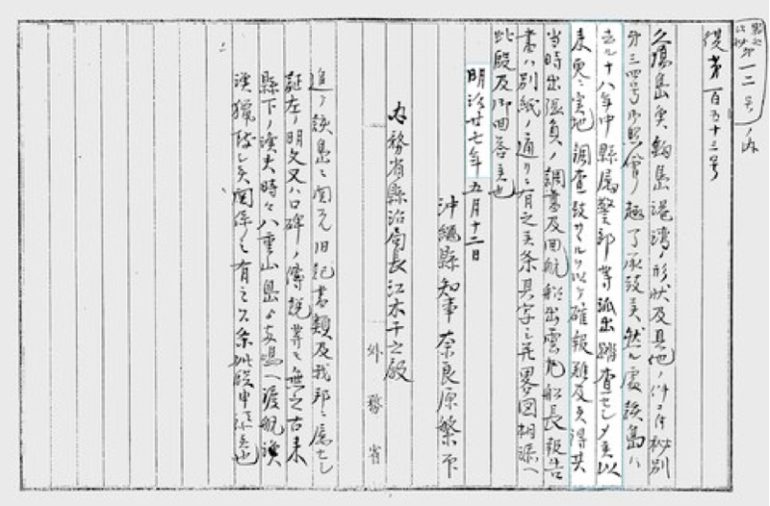 第一二号ノ内
復第百五十三号
久場島魚釣島港湾ノ形状及其他ノ件ニ付秘別
第三四号御照會ノ趣了承致候然ル處該島ハ
去ル十八年中縣属警部等派出踏査セシメ候以
来更ニ実地調査致サヽルヲ以テ確報難及候得共
当時出張員ノ調書及回航船出雲丸船長報告
書ハ別紙ノ通リニ有之候条其写ニ畧図相添ヘ
此段及御回答候也
明治廿七年五月十二日
沖縄縣知事奈良原繁
内務省縣治局長江木千之殿
外務省
追テ該島ニ関スル旧記書類及我邦ニ属セシ
証左ノ明文又ハ口碑ノ傳説等モ無之古来
縣下ノ漁夫時々八重山島ヨリ両島ヘ渡航漁
猟致シ候関係ノミ有之候条此段申添候也